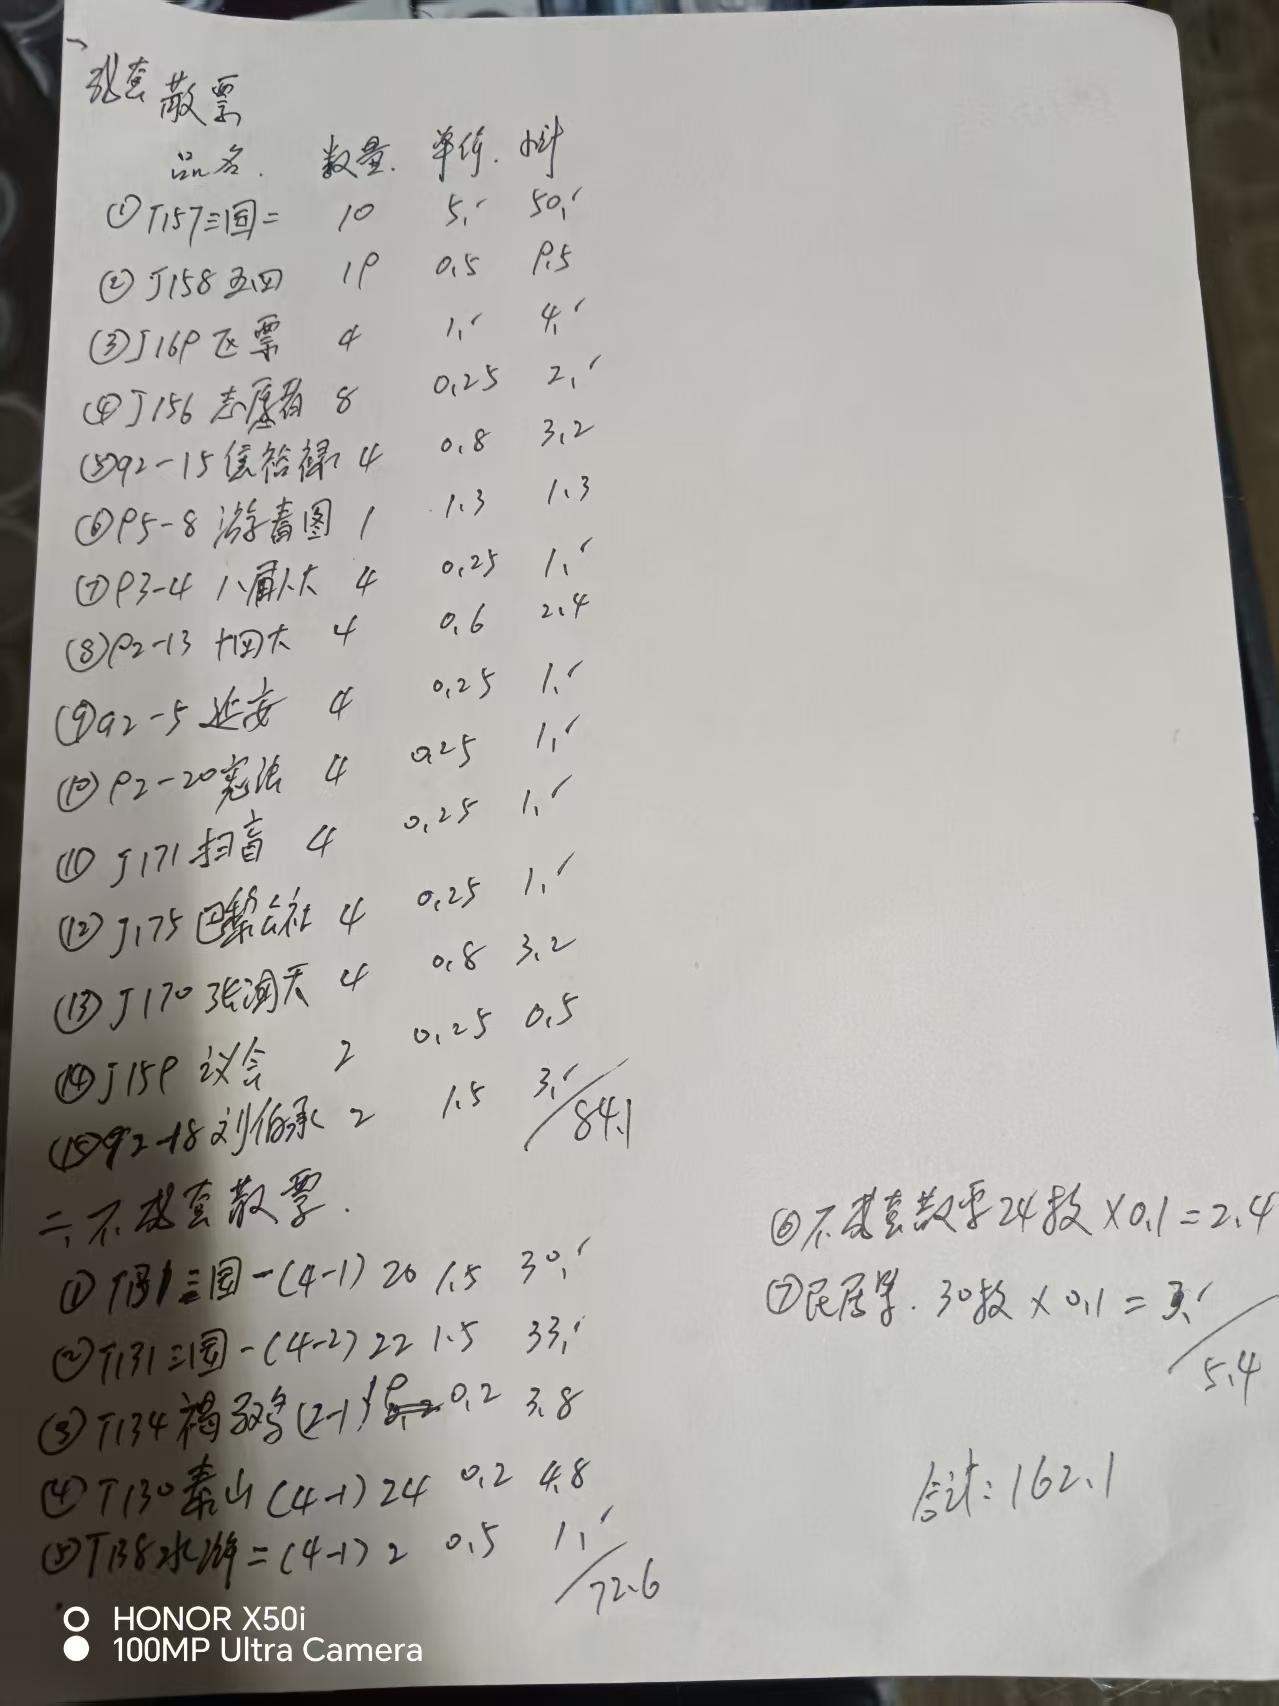 一、
成套散票
品名. 数量. 单价. 小计
① T157三国二 10 5.- 50.-
② J158五四 19 0.5 9.5
③ J169区票 4 1.- 4.-
④ J156志愿者 8 0.25 2.-
⑤ 92-15焦裕禄 4 0.8 3.2
⑥ 95-8游春图 1 1.3 1.3
⑦ 93-4八届人大 4 0.25 1.-
⑧ 92-13十四大 4 0.6 2.4
⑨ 92-5延安 4 0.25 1.-
⑩ 92-20宪法 4 0.25 1.-
⑪ J171扫盲 4 0.25 1.-
⑫ J175巴黎公社 4 0.25 1.-
⑬ J170张闻天 4 0.8 3.2
⑭ J159议会 2 0.25 0.5
⑮ 92-18刘伯承 2 1.5 3.-
84.1
二、不成套散票.
① T131三国一(4-1) 20 1.5 30.-
② T131三国一(4-2) 22 1.5 33.-
③ T134褐马鸡(2-1) 19 0.2 3.8
④ T130泰山(4-1) 24 0.2 4.8
⑤ T138水浒二(4-1) 2 0.5 1.-
72.6
⑥ 不成套散票24枚×0.1=2.4
⑦ 民居票.30枚×0.1=3.-
5.4
合计:162.1
HONOR X50i
100MP Ultra Camera